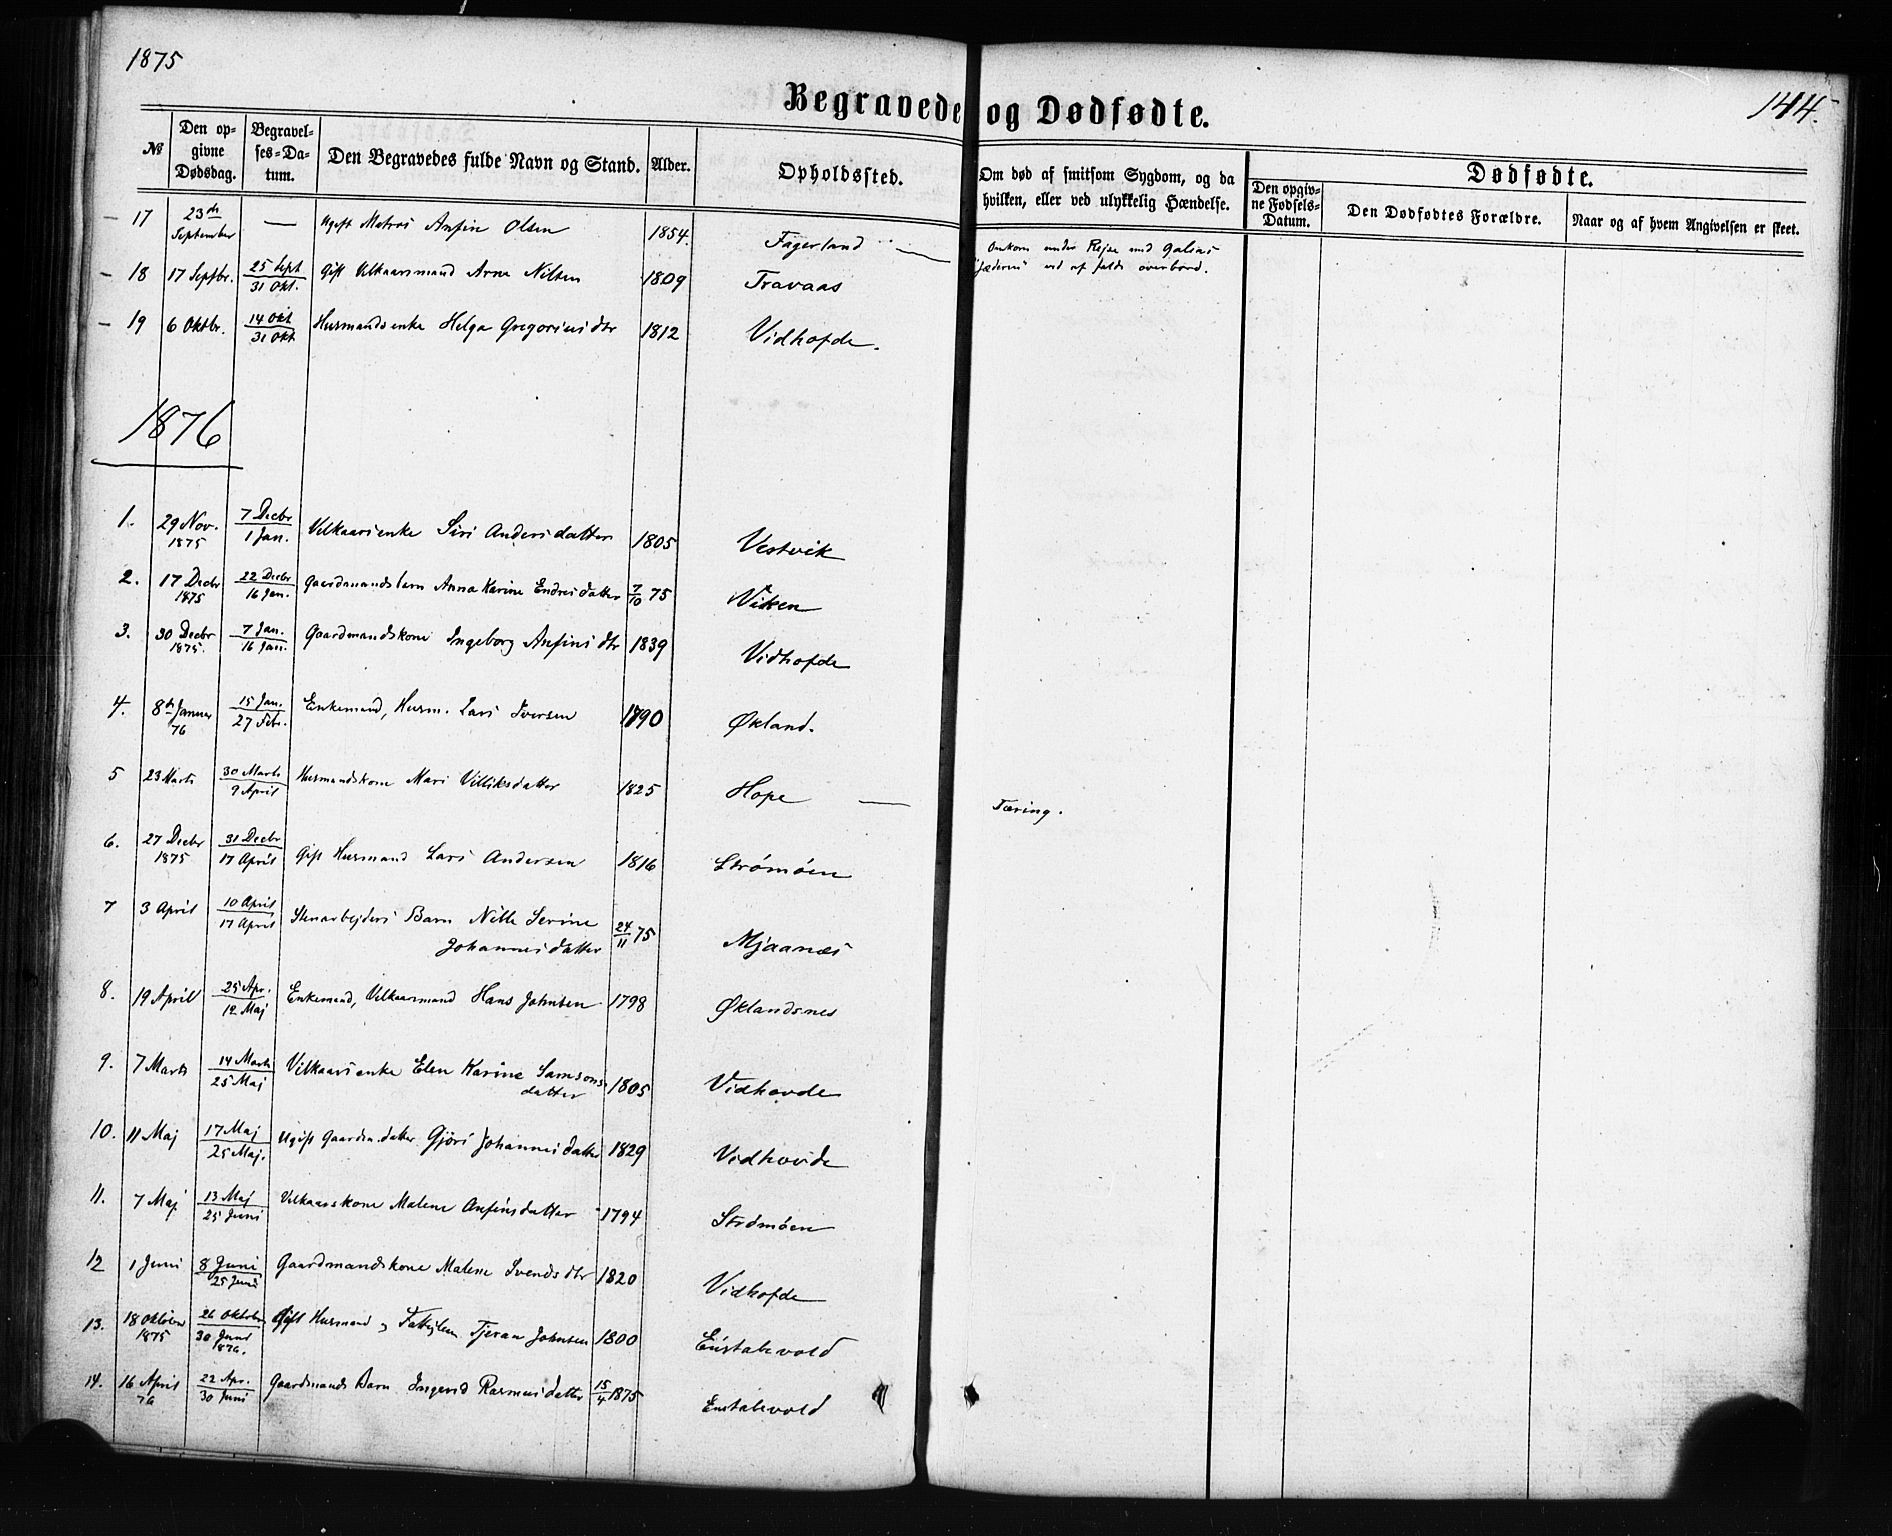 1875
144.
Begravede og Dødfødte.
№ Den opgivne Dødsdag. Begravelses-Datum. Den Begravedes fulde Navn og Stand. Alder. Opholdssted. Om død af smitsom Sygdom, og da hvilken, eller ved ulykkelig Hændelse. Dødfødte.
Den opgivne Fødsels-Datum. Den Dødfødtes Forældre. Naar og af hvem Angivelsen er skeet.
17 23de September — Ugift Matros Anfin Olsen 1854. Fagerland — Omkom under Rejse med Galeas "Jæderen" ved at falde overbord.
18 17 Septbr. 25 Sept 31 Okt. Gift Vilkaarsmand Arne Nilsen 1809 Travaas
19 6 Oktbr. 14 Okt 31 Okt Husmandsenke Helga Gregoriusdtr 1812 Vidhofde.
1876
1. 29 Nov. 1875 7 Decbr 1 Jan. Vilkaarsenke Siri Andersdatter 1805 Vestvik
2. 17 Decbr 1875 22 Decbr 16 Jan. Gaardmandsbarn Anna Karine Endresdatter 7/10 75 Viken
3. 30 Decbr 1875. 7 Jan. 16 Jan. Gaardmandskone Ingeborg Anfinsdtr 1839 Vidhofde
4. 8de Januar 76 15 Jan. 27 Febr. Enkemand, Husm. Lars Iversen 1790 Økland.
5 23 Marts 30 Marts 9 April Husmandskone Mari Villiksdatter 1825 Hope — Tæring.
6. 27 Decbr 1875 31 Decbr 17 April Gift Husmand Lars Andersen 1816 Strømøen
7 3 April 10 April 17 April Stenarbejders Barn Nille Serine Johannesdatter 24/11 75 Mjaanæs
8. 19 April 25 Apr. 12 Maj Enkemand, Vilkaarsmand Hans Johnsen 1798 Øklandsnes
9. 7 Marts 14 Marts 25 Maj Vilkaarsenke Elen Karine Samsonsdatter 1805 Vidhovde
10. 11 Maj 17 Maj 25 Maj. Ugift Gaardm.datter Gjøri Johannesdatter 1829 Vidhovde
11. 7 Maj 13 Maj 25 Juni Vilkaarskone Malene Anfinsdatter 1794 Strømøen
12 1 Juni 8 Juni 25 Juni Gaardmandskone Malene Svendsdtr 1820 Vidhofde
13. 18 Oktober 1875 26 Oktober 30 Juni 1876. Gift Husmand Tjeran Johnsen 1800 Enstabevold
14. 16 April 76 22 Apr. 30 Juni Gaardmands Barn Ingerid Rasmusdatter 15/4 1875 Enstabevold